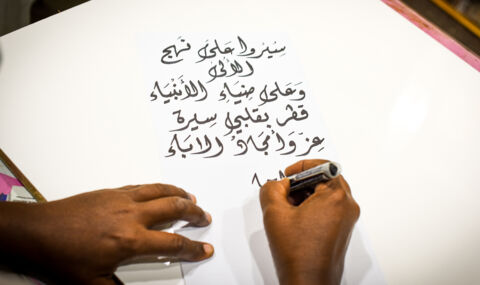 سِيرُوا عَلَى نَهجِ
الأُلَى
وَعَلَى ضِيَاءِ الأَنبْيَاءِ
قَطَر بِقَلبِي سِيرَة
عِزّ وَأَمجَادُ الابَاءِ